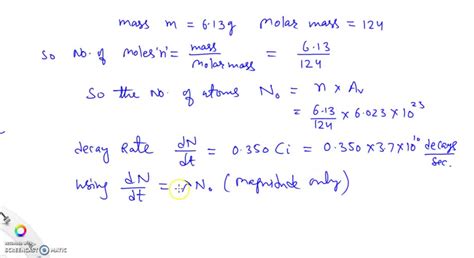 mass m = 6.13g molar mass = 124
So No. of moles 'n' = mass / molar mass = 6.13 / 124
So the No. of atoms N₀ = n × Av
= 6.13 / 124 × 6.023 × 10²³
decay Rate dN/dt = 0.350 Ci = 0.350 × 3.7 × 10¹⁰ decays/sec.
using dN/dt = λ N₀ (magnitude only)
RECORDED WITH
SCREENCAST MATIC